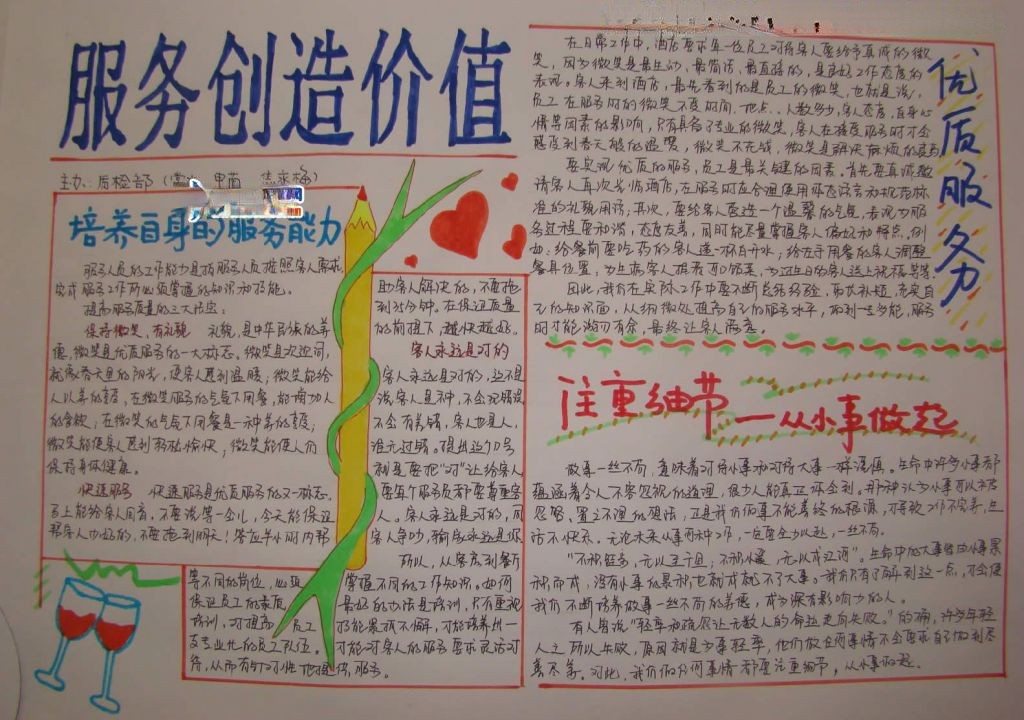 服务创造价值
主办：质检部
培养自身的服务能力
服务人员的工作能力是指服务人员按照客人需求,
完成服务工作所必须掌握的知识和技能。
提高服务质量的三大法宝：
保持微笑、有礼貌 礼貌,是中华民族的美
德,微笑是优质服务的一大标志。微笑是欢迎词,
就像春天里的阳光,使客人感到温暖；微笑能给
人以美的享受,在微笑服务的气氛下用餐,能增加人
的食欲；在微笑的气氛下用餐是一种美的享受；
微笑能使客人感到轻松愉快,微笑能使人们
保持身体健康。
快速服务 快速服务是优质服务的又一标志。
马上能给客人回音,不要说等一会儿,今天能保证
帮客人办好的,不要拖到明天！答应半小时内帮
助客人解决的,不要拖
到35分钟。在保证质量
的前提下,越快越好。
客人永远是对的
客人永远是对的,这不是
说,客人是神,不会犯错误,
不会有差错,客人也是人,
谁无过错。提出这个口号
就是要把“对”让给客人
要每个服务员都要尊重客
人。客人永远是对的,同
客人争吵,输的永远是你。
所以,从客房到餐厅
等不同的岗位,必须
掌握不同的工作知识。如何
保证员工的素质,
最好的办法是培训,只有重视
培训,对提高员工
技能最试不懈,才能培养出一
支专业化的员工队伍。
才能对客人的服务要求灵活对
待,从而有针对性地提供服务。
优质服务
在日常工作中,酒店要求每一位员工对待客人要给予真诚的微
笑,因为微笑是最生动、最简洁、最直接的,是良好工作态度的
表现。客人来到酒店,最先看到的是员工的微笑,也就是说,
员工在服务时的微笑不受时间、地点、人数多少,客人态度,自身心
情等因素的影响,只有具备了专业的微笑,客人在接受服务时才会
感受到春天般的温暖,微笑不花钱,微笑是解决麻烦的
要实现优质的服务,员工是最关键的因素,首先要真诚邀
请客人再次光临酒店,在服务时应合理使用体态语言和规范标
准的礼貌用语；其次,要给客人营造一个温馨的气氛,表现为服
务过程要和谐,态度友善,同时能尽量掌握客人偏好和特点,例
如：给餐前要吃药的客人送一杯白开水；给左手用餐的客人调整
餐具位置,为生病客人推荐可口饭菜,为过生日的客人送上祝福等等。
因此,我们在实际工作中要不断总结经验,取长补短,充实自
己的知识面,从细微处提高自己的服务水平,做到一专多能,服务
时才能游刃有余,最终让客人满意。
注重细节
—从小事做起
做事一丝不苟,意味着对待小事和对待大事一样谨慎。生命中许多小事都
蕴涵着令人不容忽视的道理,很少人能真正体会到。那种认为小事可以
忽略、置之不理的想法,正是我们做事不能善终的根源,不
仅使工作不完美,生活不快乐。无论未来从事何种工作,一定要全力以赴,一丝不苟。
“不积跬步,无以至千里；不积小流,无以成江河”。生命中的大事皆由小事累
积而成,没有小事的累积也就成就不了大事。我们只有了解到这一点,才会使
我们不断培养做事一丝不苟的美德,成为深有影响力的人。
有人曾说“轻率和疏忽让无数人的命运走向失败。”的确,许多年轻
人之所以失败,原因就是办事轻率,他们放在何事情不会要求自己做到尽
善尽美。对此,我们做任何事情都要注重细节,从小事做起。